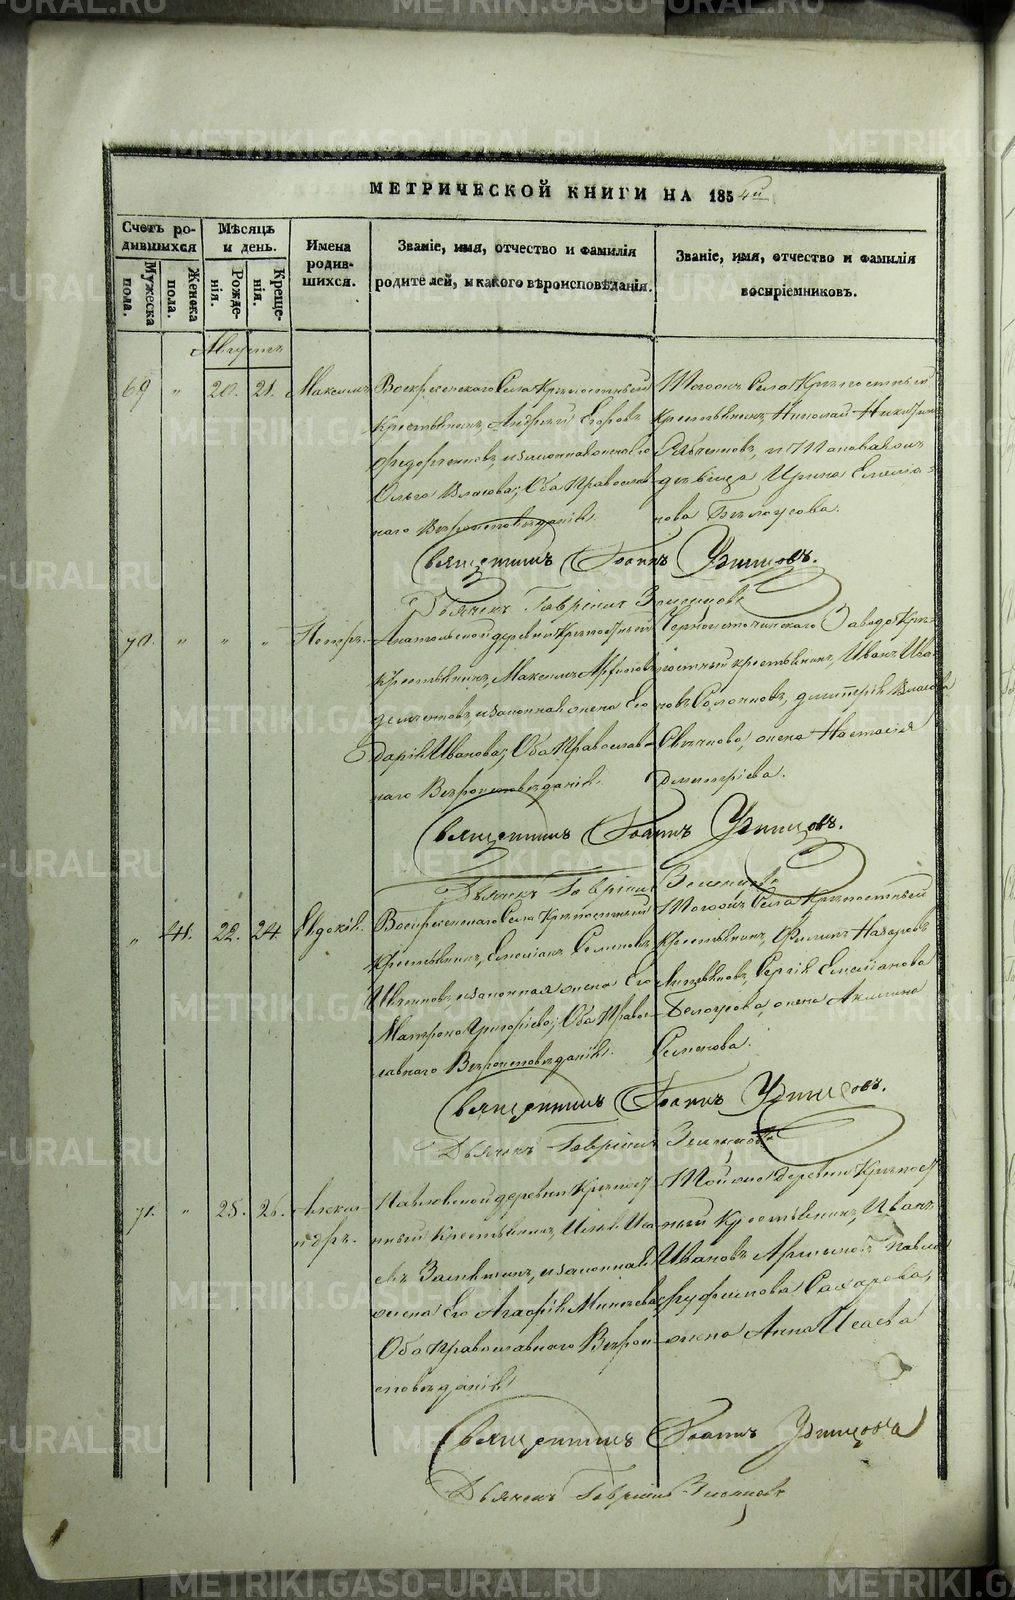 МЕТРИЧЕСКОЙ КНИГИ НА 1854й
Счетъ ро-
дившихся
Мужеска
пола.
Женска
пола.
Мѣсяцъ
и день.
Рожде-
нія.
Креще-
нія.
Имена
родив-
шихся.
Званіе, имя, отчество и фамилія
родителей, и какого вѣроисповѣданія.
Званіе, имя, отчество и фамилія
воспріемниковъ.
Августъ
69 " 20. 21. Максимъ
Воскресенскаго Села Крѣпостный
Крестьянинъ, Андрей Егоровъ
и законная жена его
Ольга Власова; Оба Православ-
наго Вѣроисповѣданія.
Тогожъ Села Крѣпостный
крестьянинъ, Николай
и
дѣвица Ирина Емелья-
нова Бѣлоусова.
Священникъ Іоаннъ Удинцовъ.
Дьячекъ Гавріилъ
70. " " " Петръ.
деревни Крѣпостный
Крестьянинъ, Максимъ
и законная жена Его
Дарія Иванова; Оба Православ-
наго Вѣроисповѣданія.
Черноисточинскаго Завода Крѣ-
постный крестьянинъ, Иванъ Ива-
новъ Димитрія Власова
жена Настасія
Димитріева.
Священникъ Іоаннъ Удинцовъ.
Дьячекъ Гавріилъ
" 41. 22. 24. Евдокія.
Воскресенскаго Села Крѣпостный
Крестьянинъ, Емельянъ Семеновъ
и законная жена Его
Матрона Григорьева; Оба Право-
славнаго Вѣроисповѣданія.
Тогожъ Села Крѣпостный
Крестьянинъ, Филипъ Назаровъ
Сергія Емельянова
Белоусова, жена Акилина
Семенова.
Священникъ Іоаннъ Удинцовъ.
Дьячекъ Гавріилъ
71. " 25. 26. Алекса-
ндръ.
Павловской деревни Крѣпост-
ный Крестьянинъ, Илья Иса-
евъ и законная
жена Его Агафія
Оба Православнаго Вѣрои-
сповѣданія.
Тойже деревни Крѣпост-
ный Крестьянинъ, Иванъ
Ивановъ Павла
Руфимова Сахарова,
жена Анна Исаева
Священникъ Іоаннъ Удинцовъ
Дьячекъ Гавріилъ
METRIKI.GASO-URAL.RU